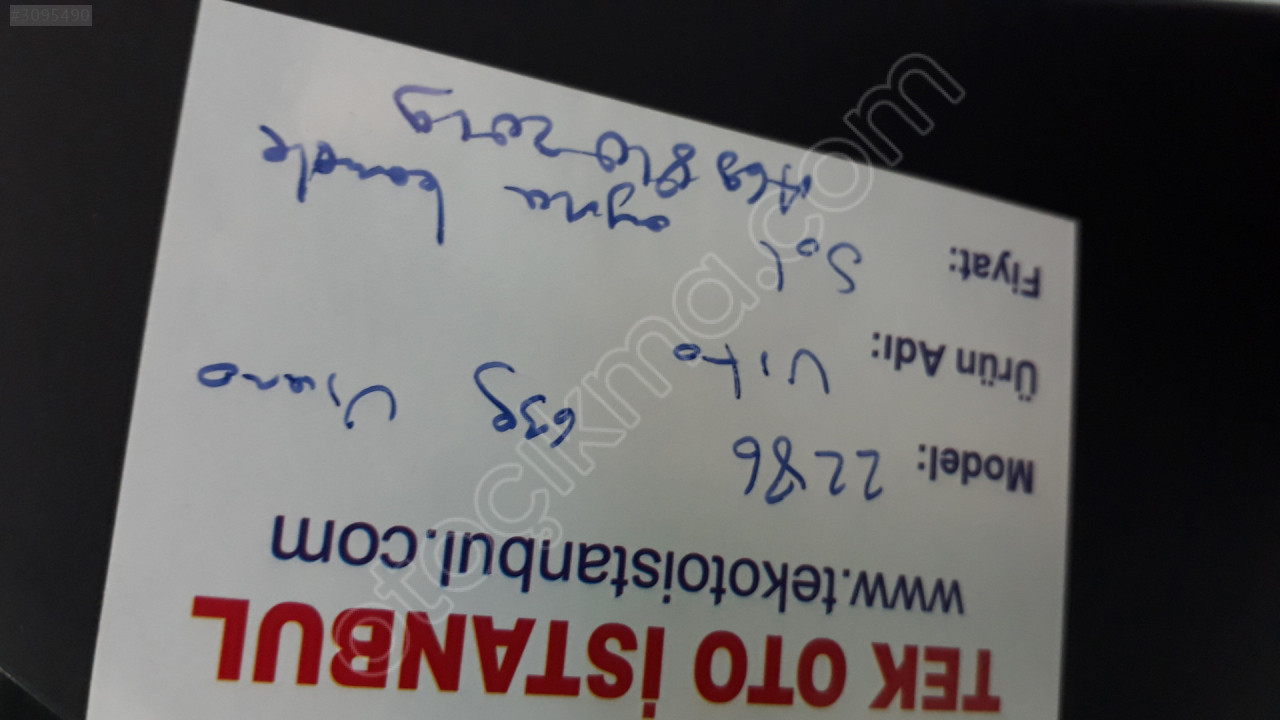 #3095490
TEK OTO İSTANBUL
www.tekotoistanbul.com
Model: 2286 639 Viano
Ürün Adı: Vito
Fiyat: Sol ayna kapak
A63 810 2019
otoçıkma.com